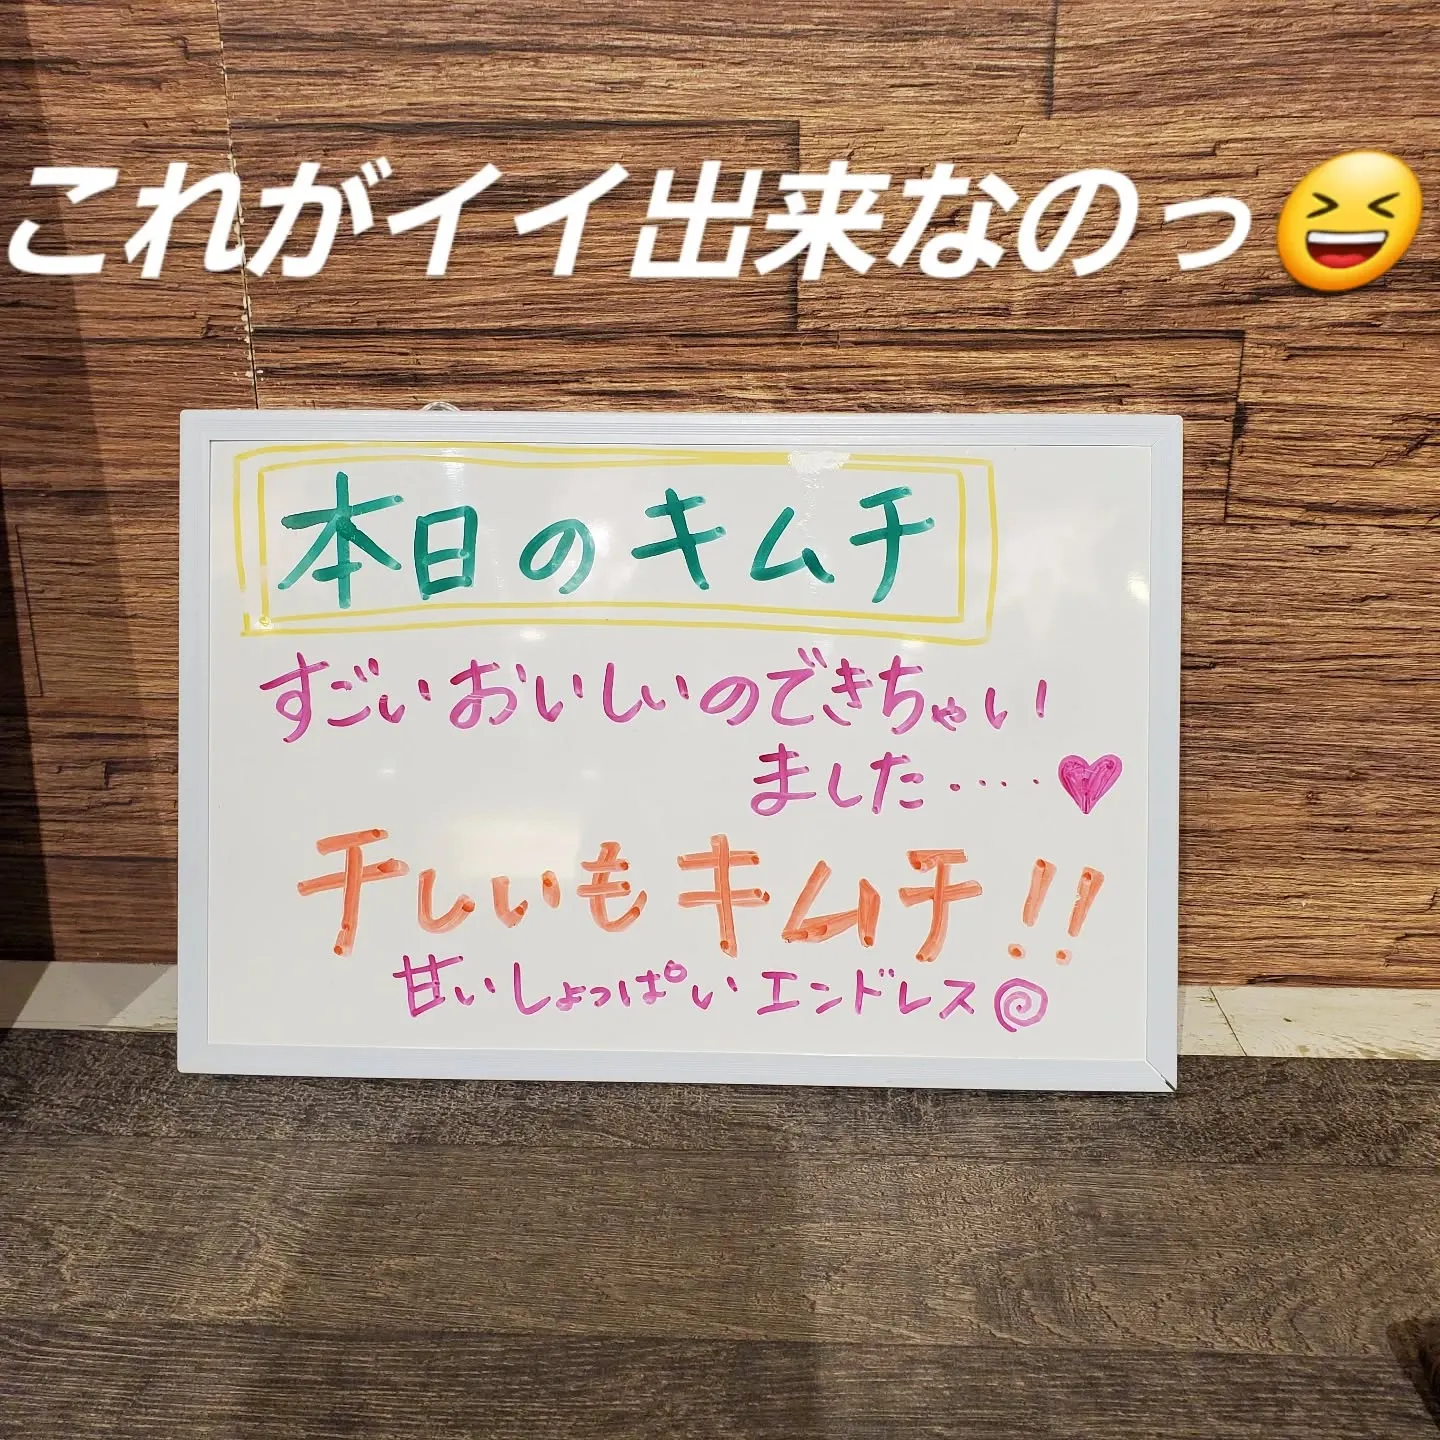 これがイイ出来なのっ😆
本日のキムチ
すごいおいしいのできちゃい
ました‥‥♥
干しいもキムチ!!
甘いしょっぱいエンドレス